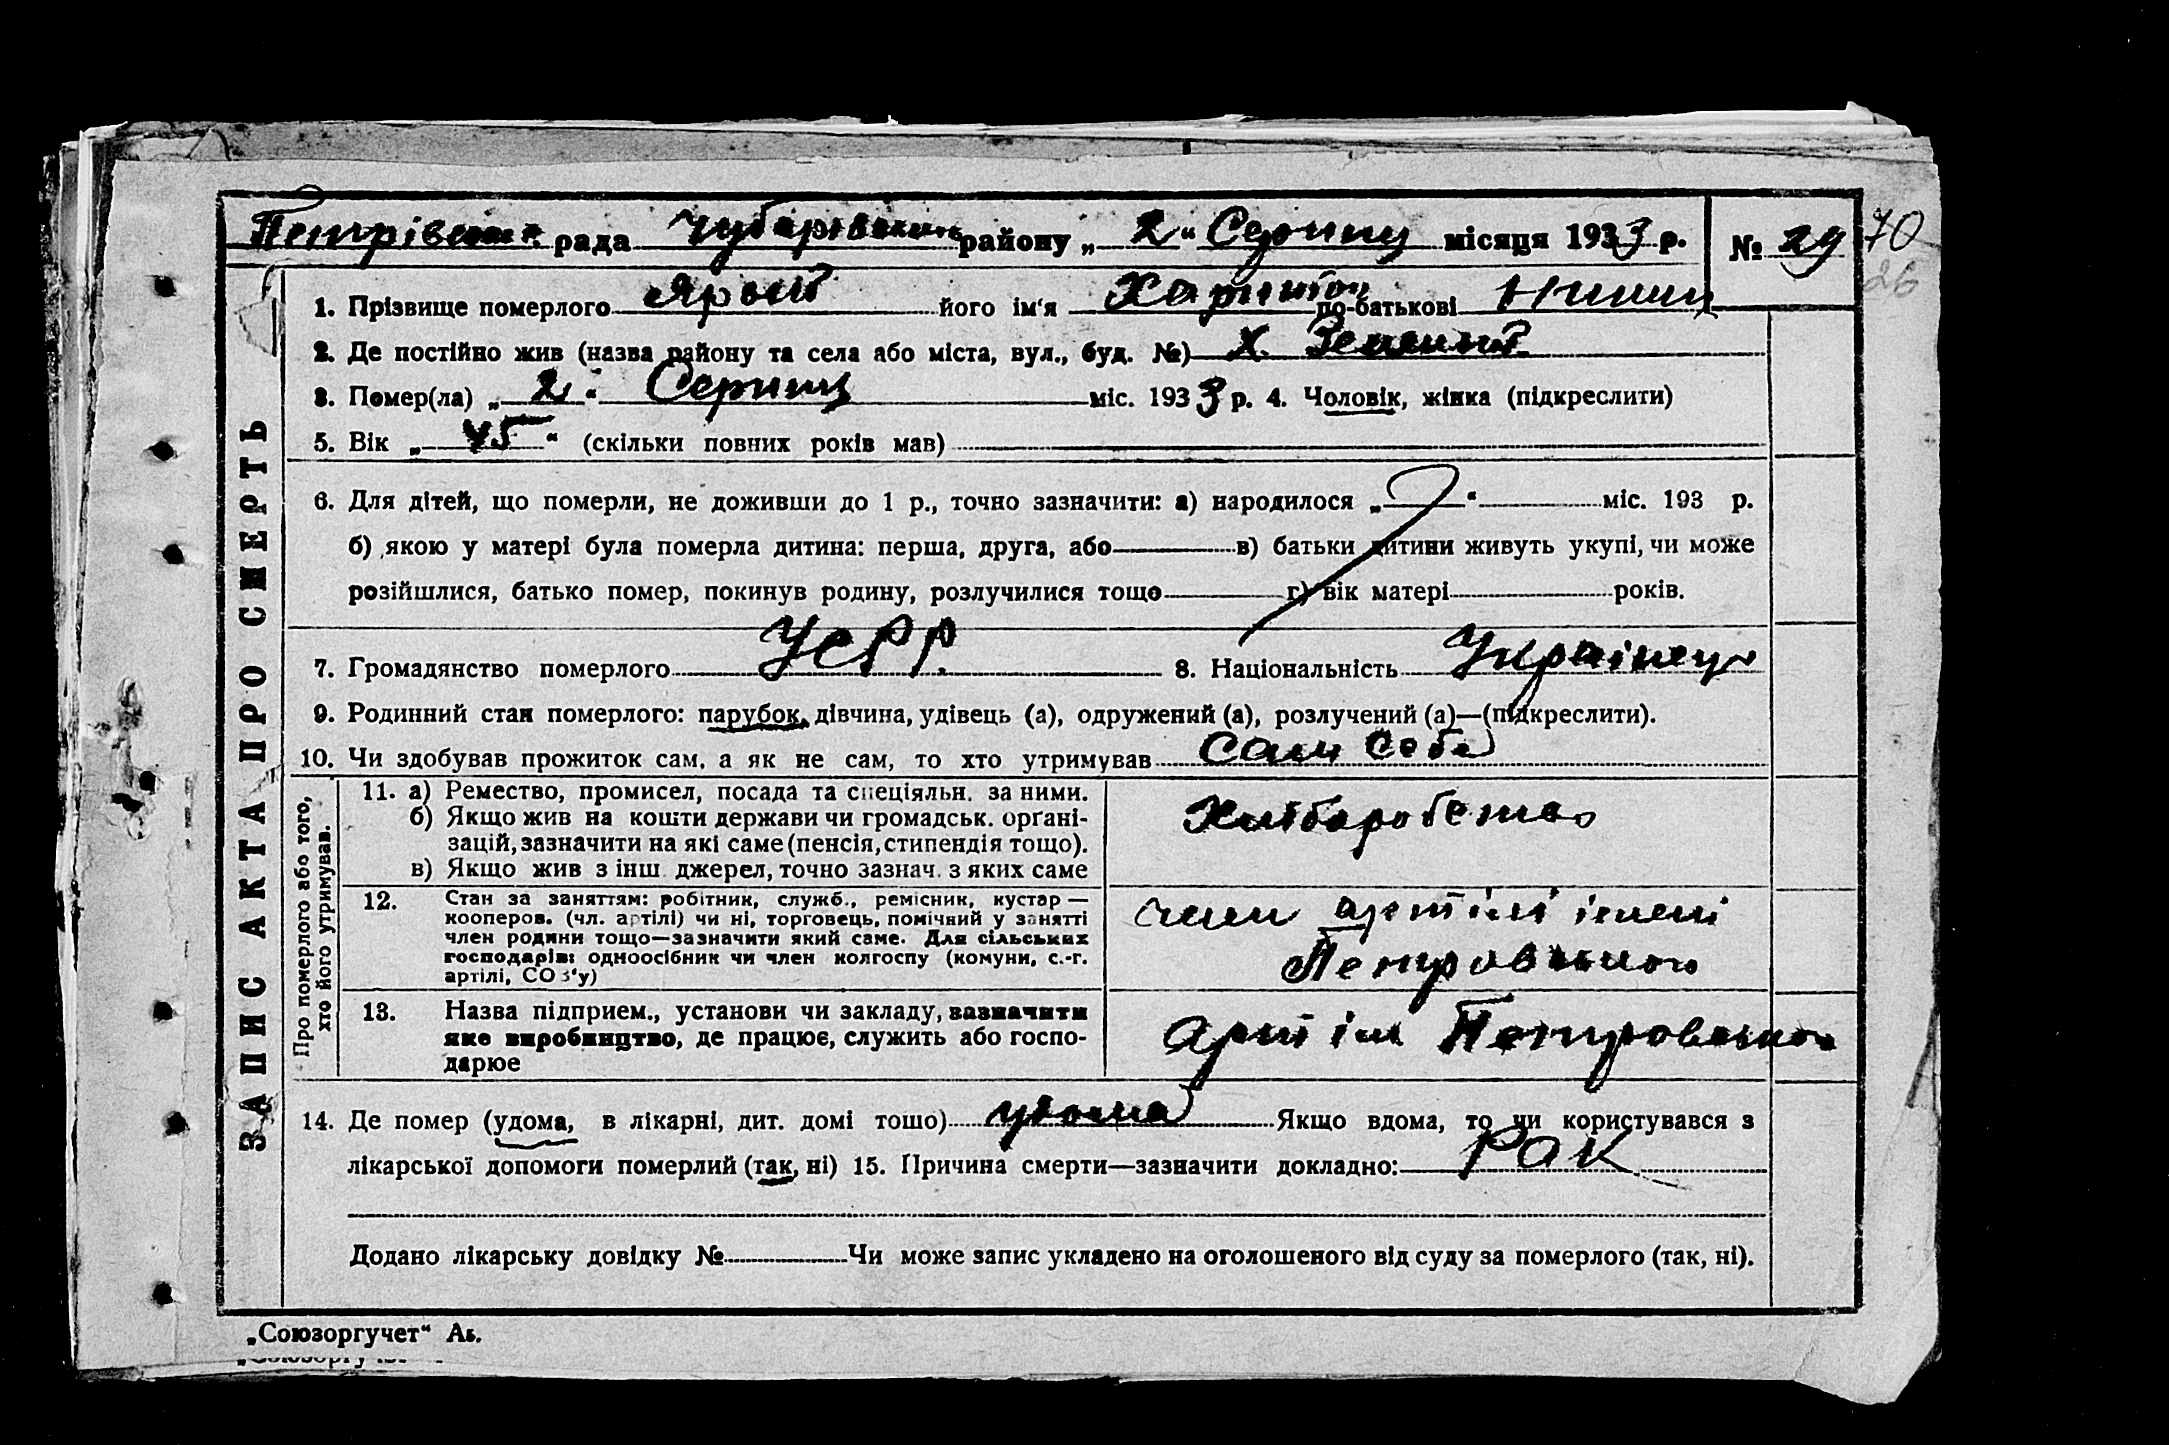 рада Чубарівський району „ 2 “ Серпня місяця 1933 р. № 29 70
26
1. Прізвище померлого Ярый його ім'я Харитон по-батькові
2. Де постійно жив (назва району та села або міста, вул., буд. №) Х. Зелений
3. Помер(ла) „ 2 “ Серпня міс. 1933 р. 4. Чоловік, жінка (підкреслити)
5. Вік „ 45 “ (скільки повних років мав)
6. Для дітей, що померли, не доживши до 1 р., точно зазначити: а) народилося „ “ міс. 193 р.
б) якою у матері була померла дитина: перша, друга, або в) батьки дитини живуть укупі, чи може
розійшлися, батько помер, покинув родину, розлучилися тощо г) вік матері років.
7. Громадянство померлого УСРР. 8. Національність Українець
9. Родинний стан померлого: парубок, дівчина, удівець (а), одружений (а), розлучений (а)—(підкреслити).
10. Чи здобував прожиток сам, а як не сам, то хто утримував Сам себе
ЗАПИС АКТА ПРО СМЕРТЬ
Про померлого або того,
хто його утримував.
11. а) Ремество, промисел, посада та спеціяльн. за ними.
б) Якщо жив на кошти держави чи громадськ. орґані-
зацій, зазначити на які саме (пенсія, стипендія тощо).
в) Якщо жив з інш. джерел, точно зазнач. з яких саме
Хліборобство
12. Стан за заняттям: робітник, служб., ремісник, кустар —
кооперов. (чл. артілі) чи ні, торговець, помічний у занятті
член родини тощо—зазначити який саме. Для сільських
господарів: одноосібник чи член колгоспу (комуни, с.-г.
артілі, СОЗ'у)
член артілі імені
Петровського
13. Назва підприєм., установи чи закладу, зазначити
яке виробництво, де працює, служить або госпо-
дарює
Арт ім Петровського
14. Де помер (удома, в лікарні, дит. домі тощо) удома Якщо вдома, то чи користувався з
лікарської допомоги померлий (так, ні) 15. Причина смерти—зазначити докладно: РАК
Додано лікарську довідку № Чи може запис укладено на оголошеного від суду за померлого (так, ні).
„Союзоргучет“ Аз.